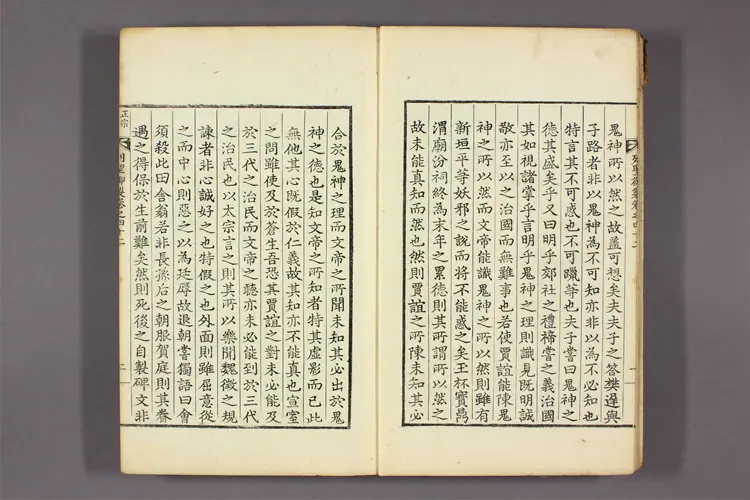 鬼神所以然之故蓋可想矣夫夫子之答樊遲與
子路者非以鬼神爲不可知亦非以爲不必知也
特言其不可惑也不可躐等也夫子嘗曰鬼神之
德其盛矣乎又曰明乎郊社之禮禘嘗之義治國
其如視諸掌乎言明乎鬼神之理則識見旣明誠
敬亦至以之治國而無難事也若使賈誼能陳鬼
神之所以然而文帝能識鬼神之所以然則雖有
新垣平等妖邪之說而將不能惑之矣玉杯寶鼎
渭廟汾祠終爲末年之累德則其所謂所以然之
故未能眞知而然也然則賈誼之所陳未知其必
列聖御製卷之四十二
一
合於鬼神之理而文帝之所聞未知其必出於鬼
神之德也是知文帝之所知者特其虛影而已此
無他其心旣假於仁義故其知亦不能眞也宣室
之問雖使及於蒼生吾恐其賈誼之對未必能及
於三代之治民而文帝之聽亦未必能到於三代
之治民也以太宗言之則其所以樂聞魏徵之規
諫者非心誠好之也特假之也外面則雖屈意從
之而中心則惡之以爲廷辱故退朝嘗獨語曰會
須殺此田舍翁若非長孫后之朝服賀庭則其眷
遇之得保於生前難矣然則死後之自製碑文非
正宗
列聖御製卷之四十二
二